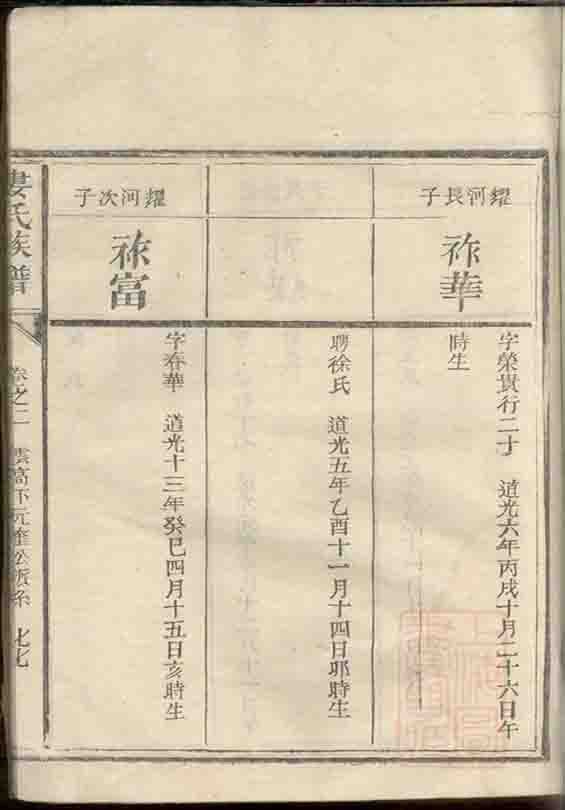 耀河長子
祚華
字榮貴行二十　道光六年丙戌十月二十六日午
時生
聘徐氏　道光五年乙酉十一月十四日卯時生
耀河次子
祚富
字春華　道光十三年癸巳四月十五日亥時生
婁氏族譜
卷之二
七七